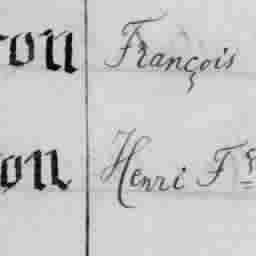 ron François
on Henri F s